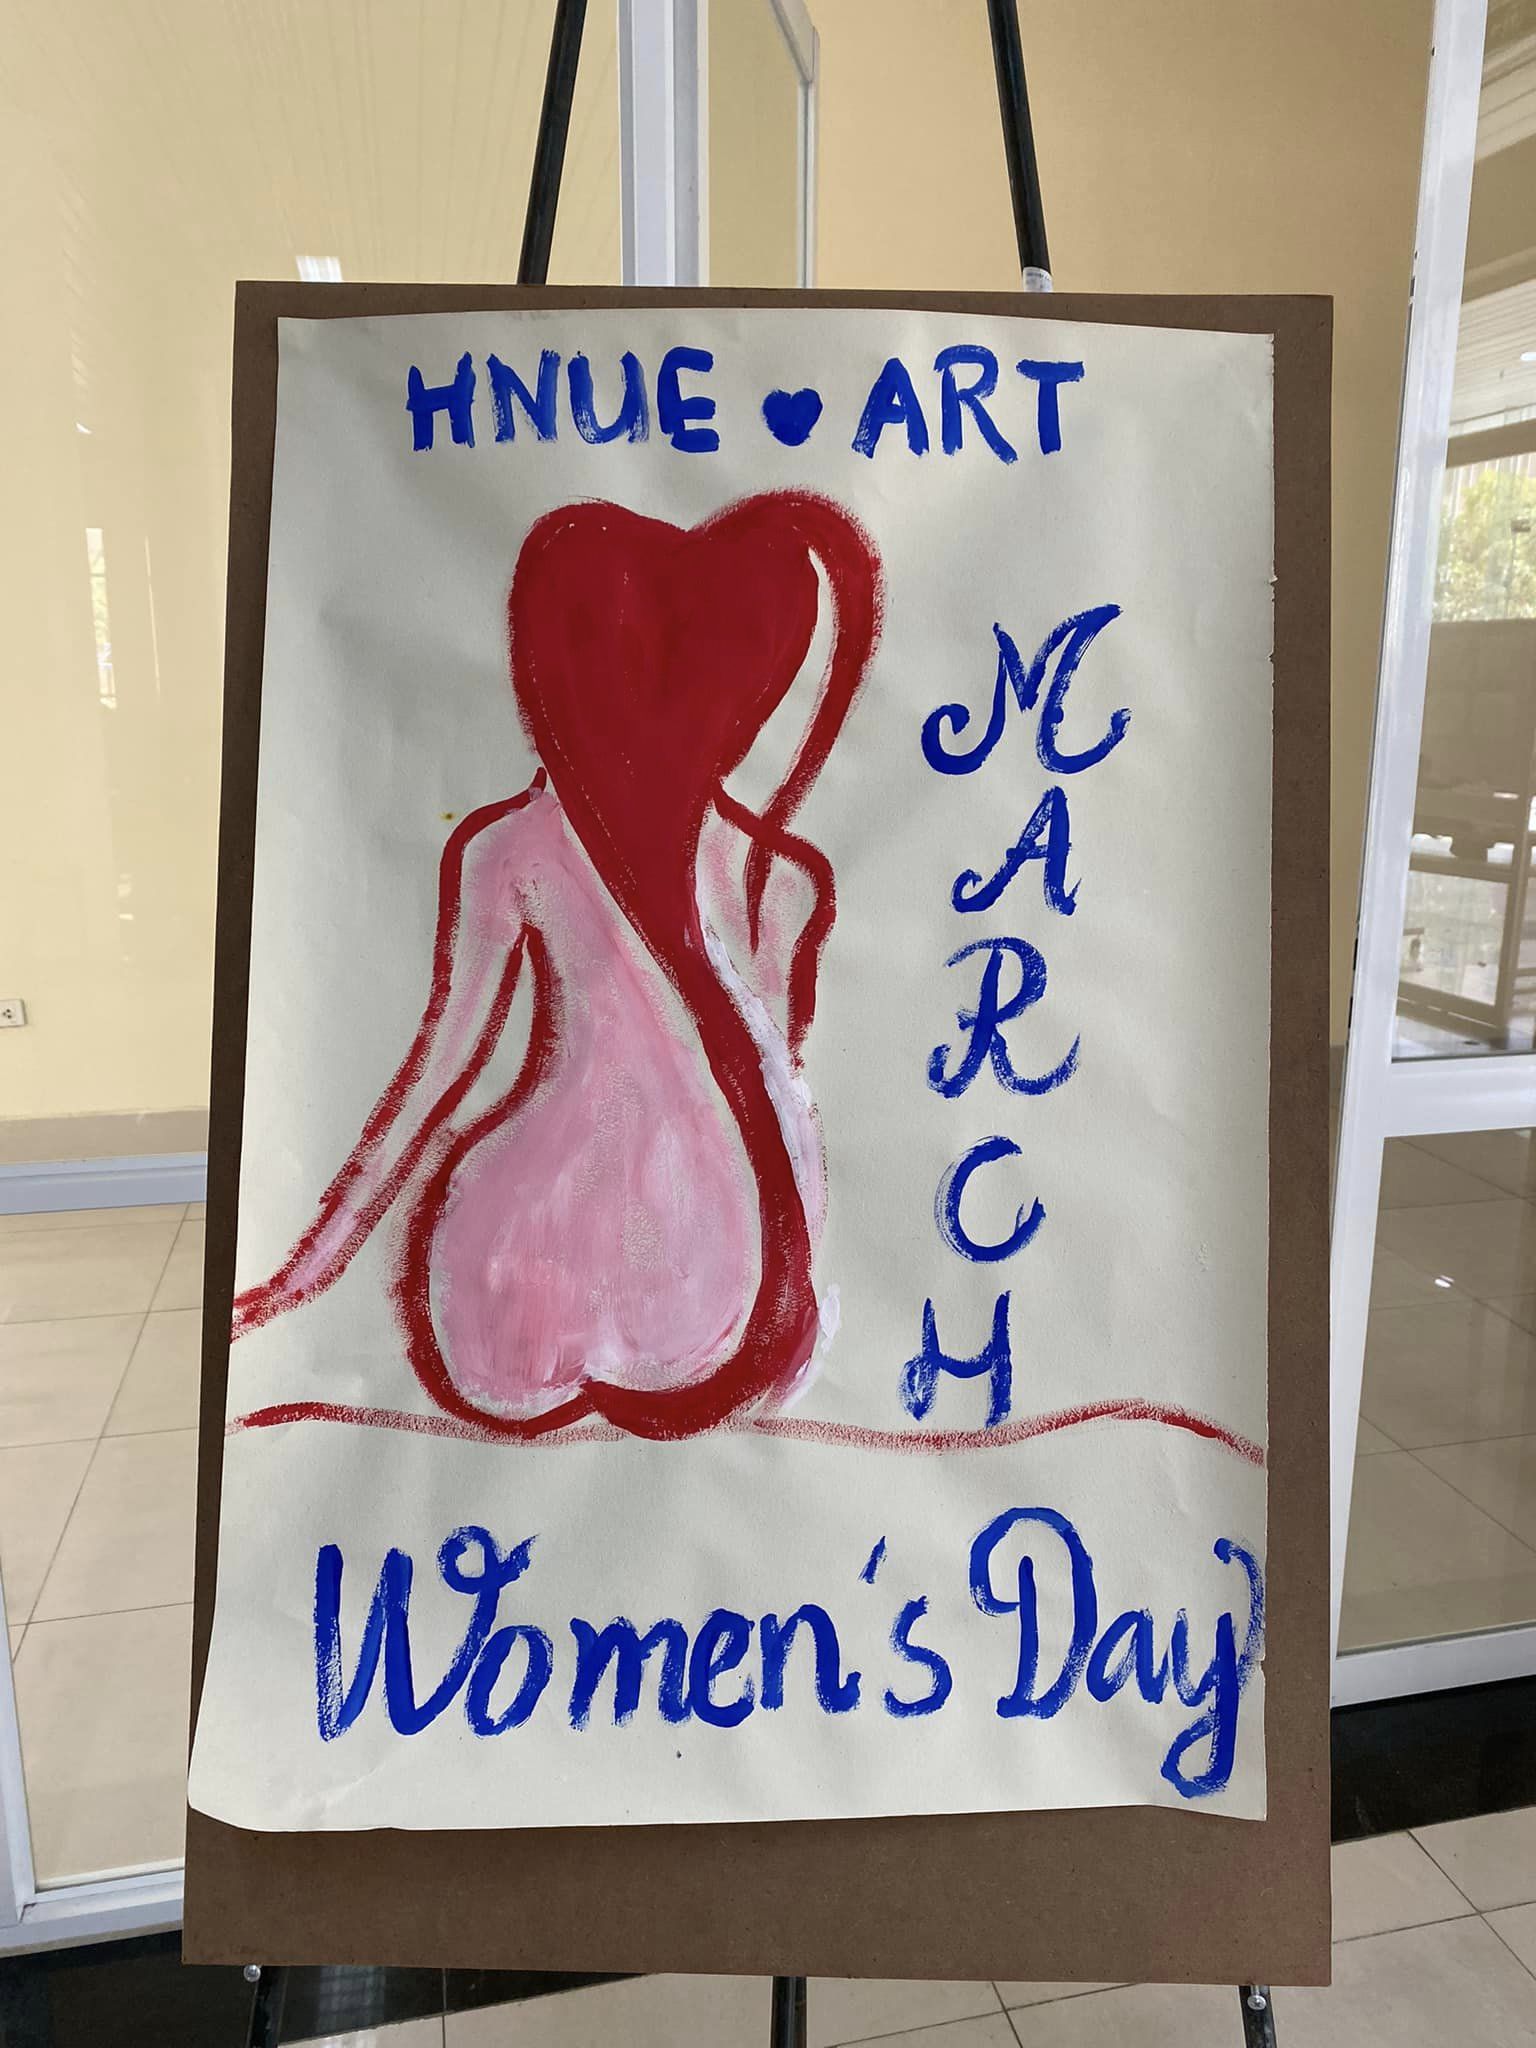 HNUE ♥ ART
MARCH
Women's Day